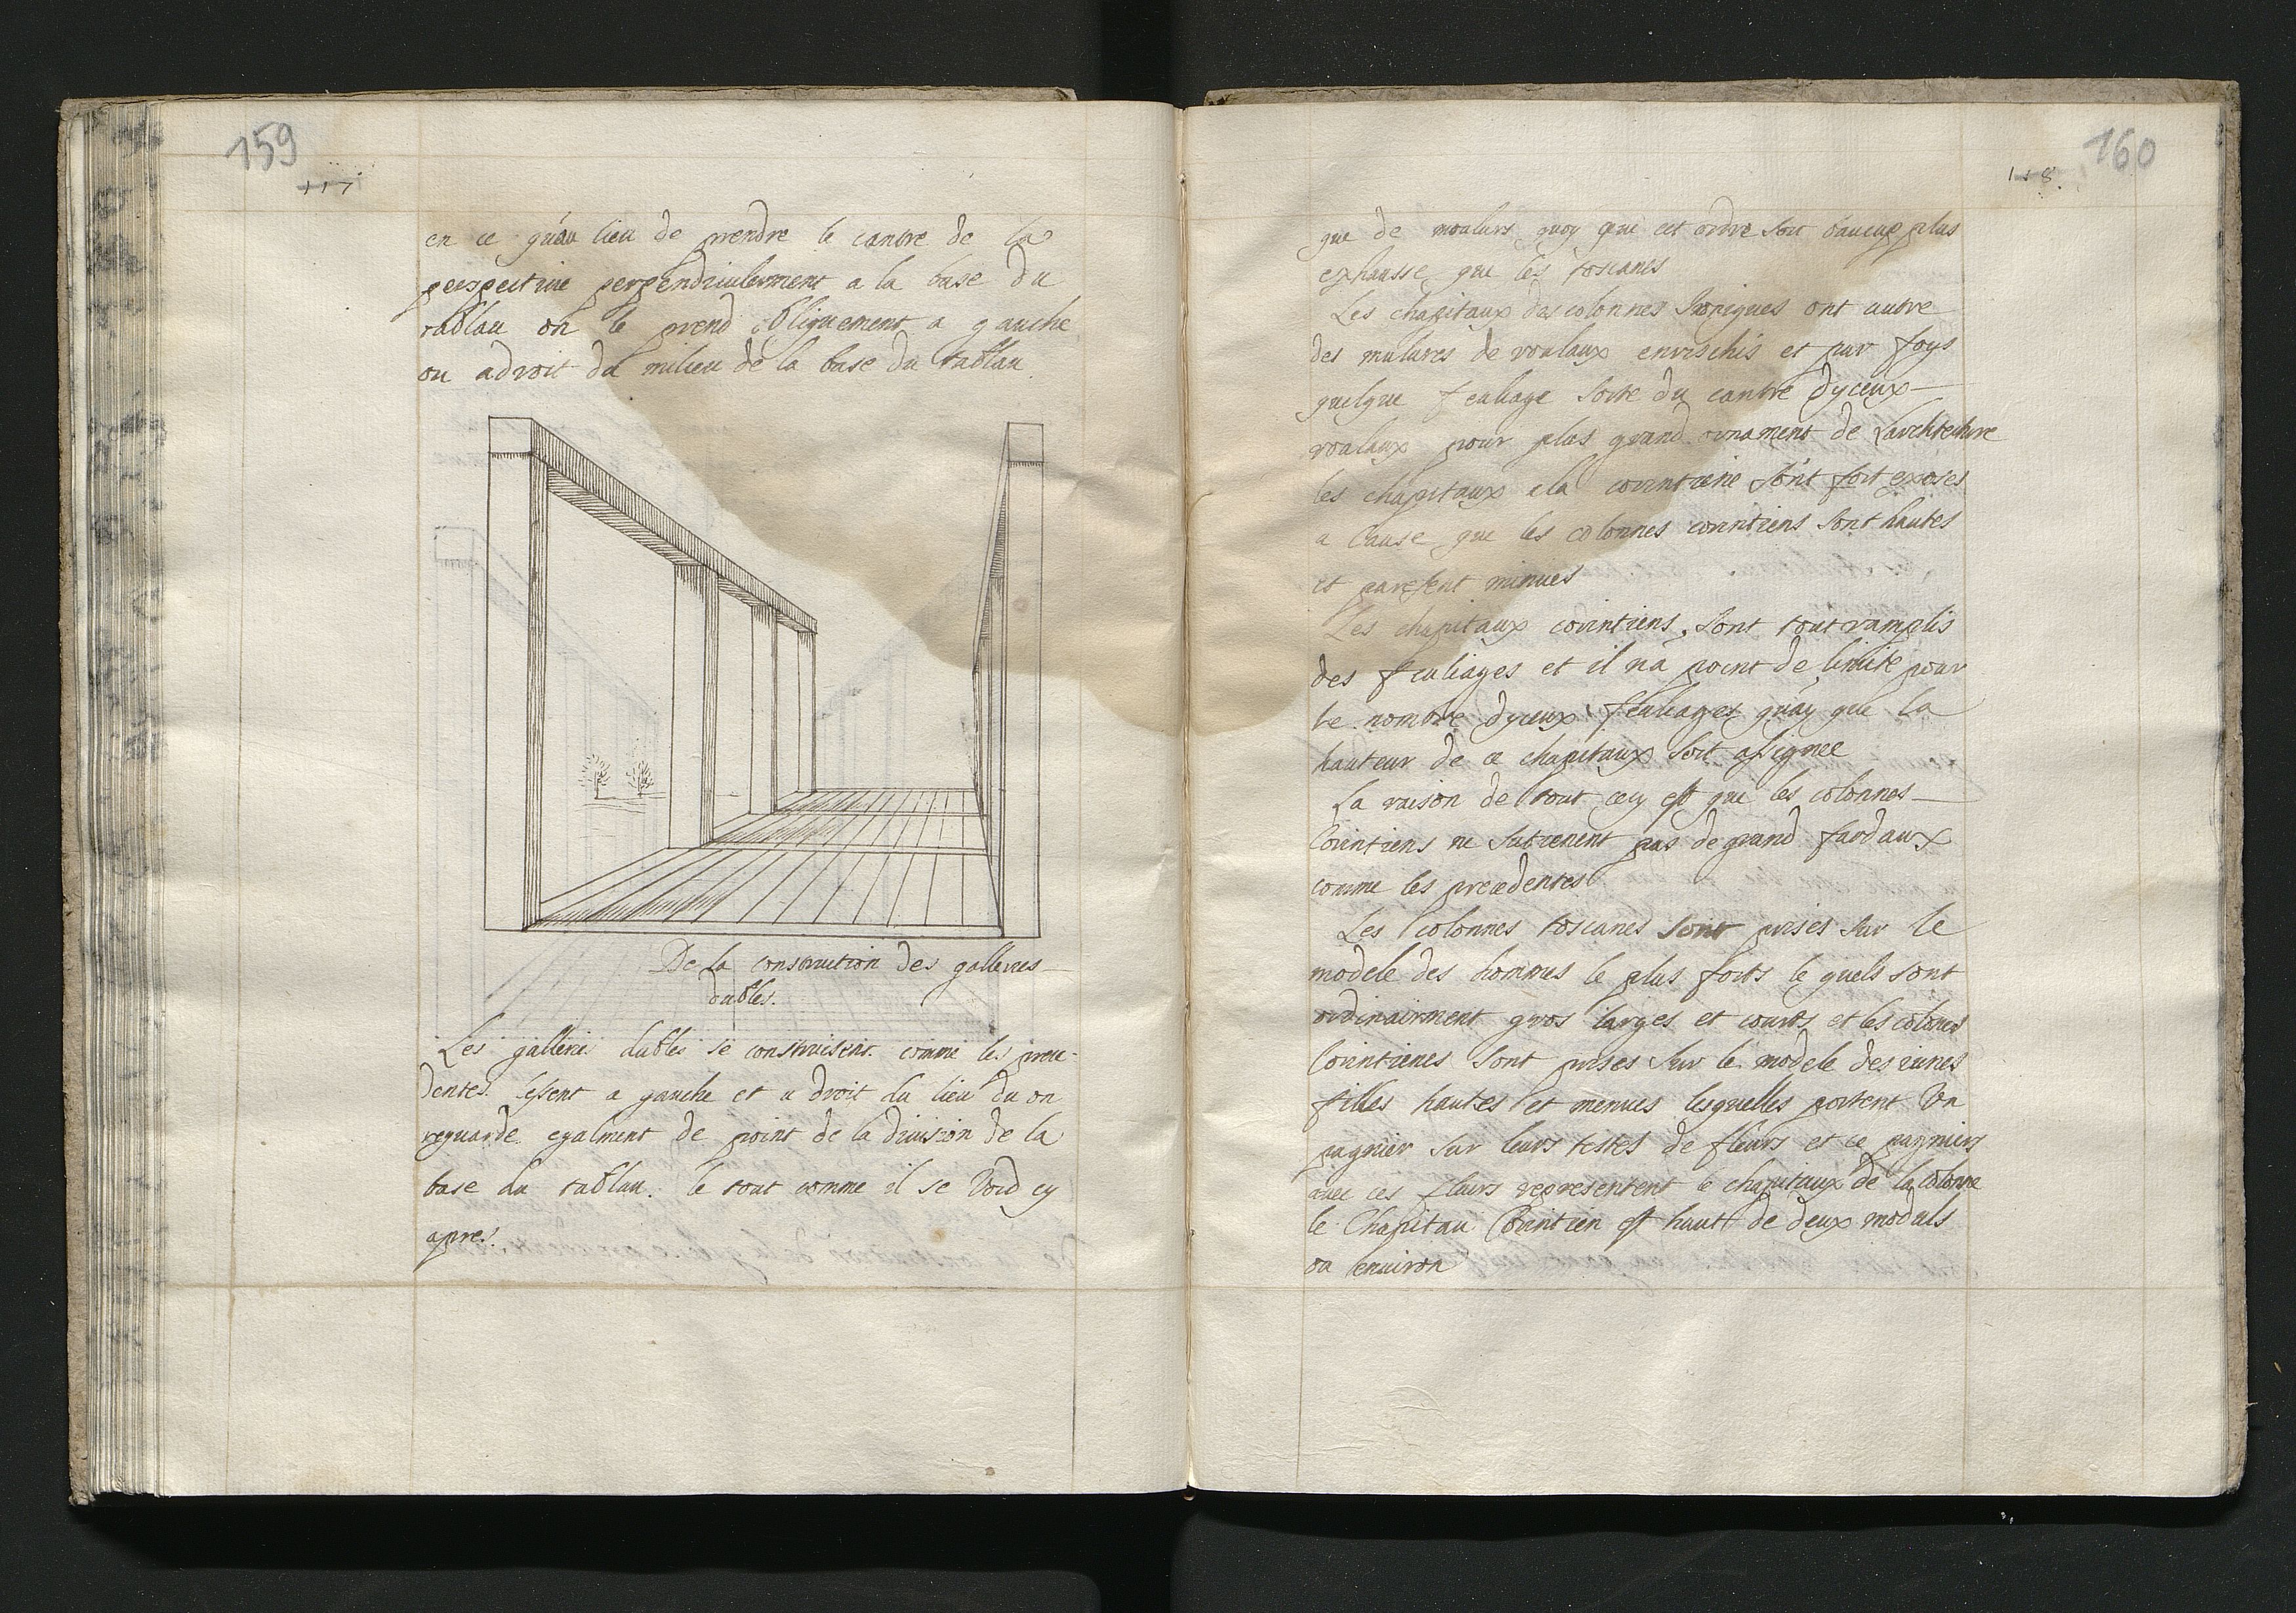 159
117
en ce qu'au lieu de prendre le cantre de la
perspectiue perpendiculerment a la base du
tablau on le prend obliquement a gauche
ou adroit du milieu de la base du tablau.
De la construction des galleries
dubles.
Les galleries dubles se construisent comme les prece-
dentes a gauche et a droit du lieu du on
reguarde egalment de point de la diuision de la
base du tablau. le tout comme il se Void cy
apres.
160
118.
que de moulurs quoy que cet ordre soit baucup plus
exhausse que les toscanes
Les chapitaux des colonnes Ioniques ont autre
des mulures de roulaux enrischis et par foys
quelque feuliage sorte du cantre dyceux
roulaux pour plus grand ornament de Larchitechure
les chapitaux a la corintiene sont fort exposes
a Cause que les colonnes corintiens sont hautes
et paressent minues
Les chapitaux corintiens, sont tout ramplis
des feuliages et il na point de limite pour
le nombre dyceux feuliages quoy que la
hauteur de ce chapitaux soit assignee
La raison de tout cecy est que les colonnes
Corintiens ne sutienent pas de grand fardaux
comme les precedentes
Les colonnes toscanes sont prises sur le
modele des hommes le plus forts le quels sont
ordinairment gros larges et courts et les colones
Corintienes sont prises sur le modele des iunes
filles hautes et menues lesquelles portent Un
pagnier sur leurs testes de fleurs et ce pagniers
auec ces fleurs representent le chapitaux de la colonne
le Chapitau Corintien est haut de deux moduls
ou enuiron